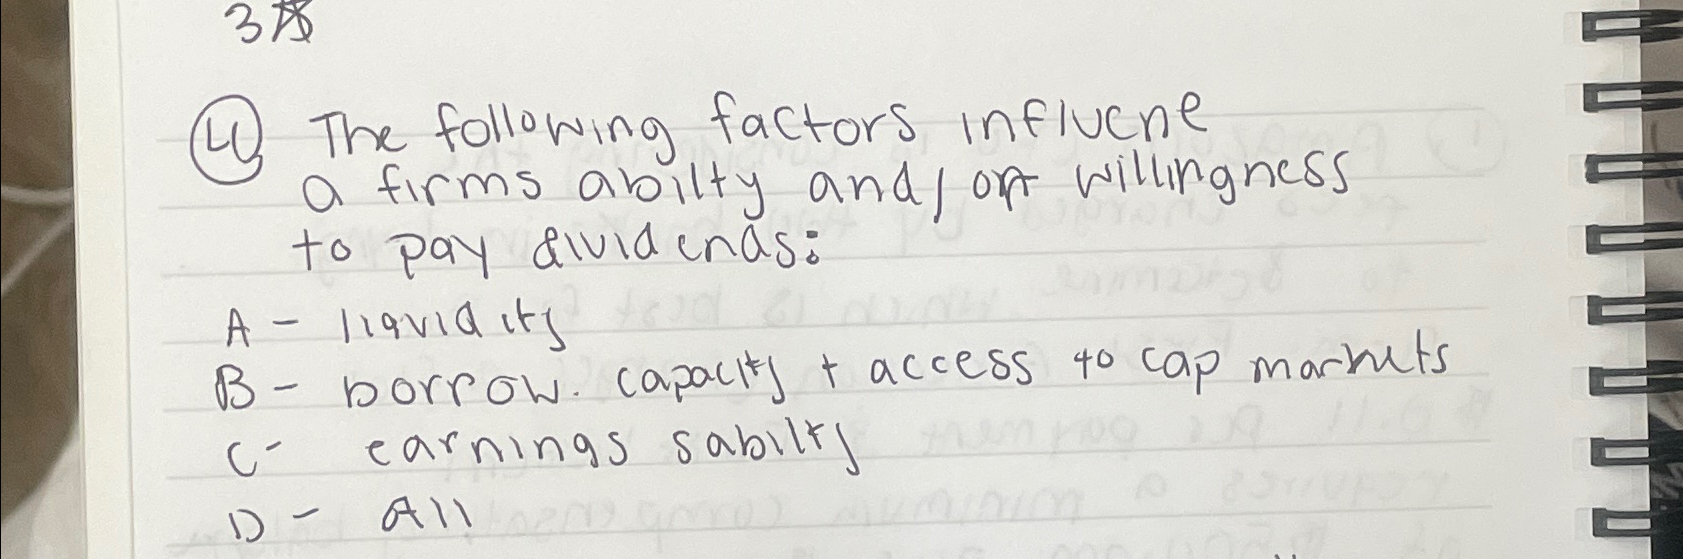 3
④ The following factors influcne
a firms abilty and/or willingness
to pay dividends:
A - liquidity
B - borrow. capacity + access to cap markets
C - earnings sabilty
D - All